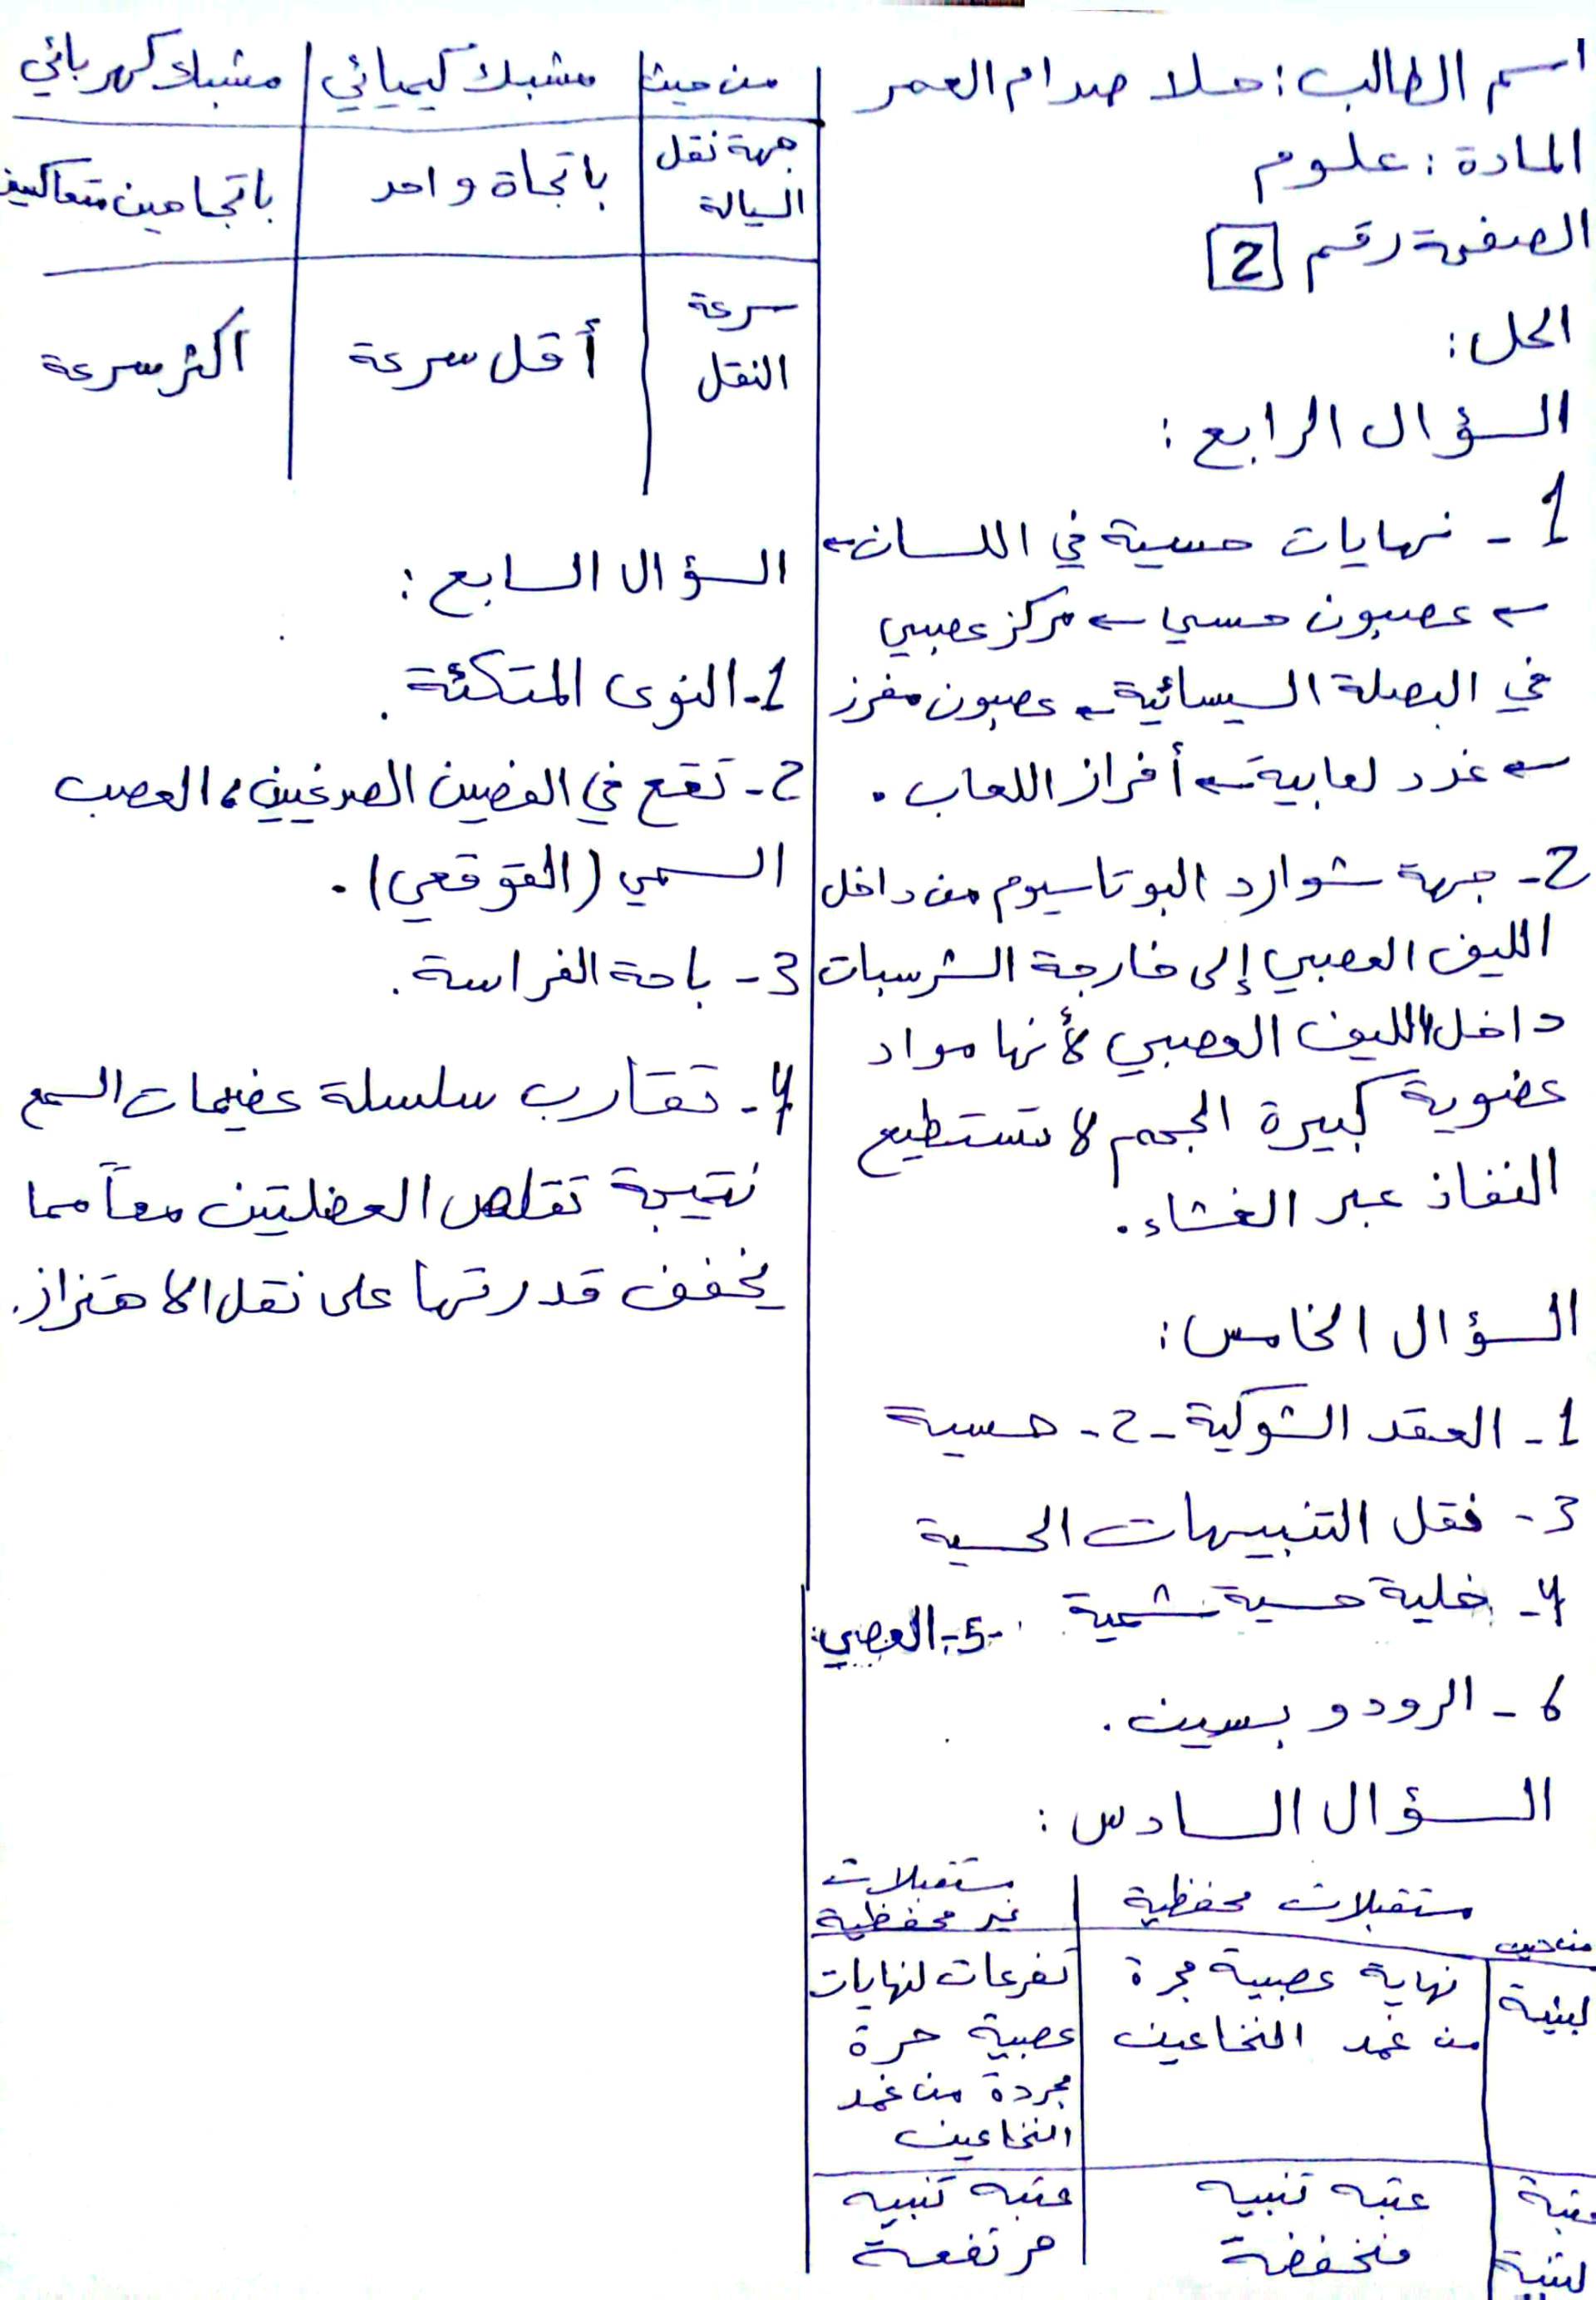 اسم الطالب: حلا صدام العمر
المادة: علوم
الصفحة رقم 2
الحل:
السؤال الرابع:
1- نهايات حسية في اللسان ←
← عصبون حسي ← مركز عصبي
في البصلة السيسائية ← عصبون مفرز
← غدد لعابية ← أفراز اللعاب.
2- جهة شوارد البوتاسيوم من داخل
الليف العصبي إلى خارجة الشرسبات
داخل الليف العصبي لأنها مواد
عضوية كبيرة الحجم لا تستطيع
النفاذ عبر الغشاء.
السؤال الخامس:
1- العقد الشوكية - 2- حسية
3- نقل التنبيهات الحسية
4- خلية حسية شمية -5- العصبي
6- الرودوبسين.
السؤال السادس:
من حيث | مستقبلات محفظية | مستقبلات غير محفظية
لبنية | نهاية عصبية مجرة | تفرعات لنهايات
من غمد النخاعين | عصبية حرة
مجردة من غمد
النخاعين
عتبة | عتبه تنبيه | عتبه تنبيه
منخفضة | مرتفعة
من حيث | مشبك كيميائي | مشبك كهربائي
جهة نقل | باتجاة واحد | باتجاهين متعاكسين
السيالة
سرعة | أقل سرعة | اكثر سرعة
النقل
السؤال السابع:
1- النوى المتكئة.
2- تقع في الفصين الصدغيين، العصب
السمي (القوقعي).
3- باحة الفراسة.
4- تقارب سلسلة عضيمات السمع
نتيجة تقلص العضلتين معاً مما
يخفف قدرتها على نقل الاهتزاز.